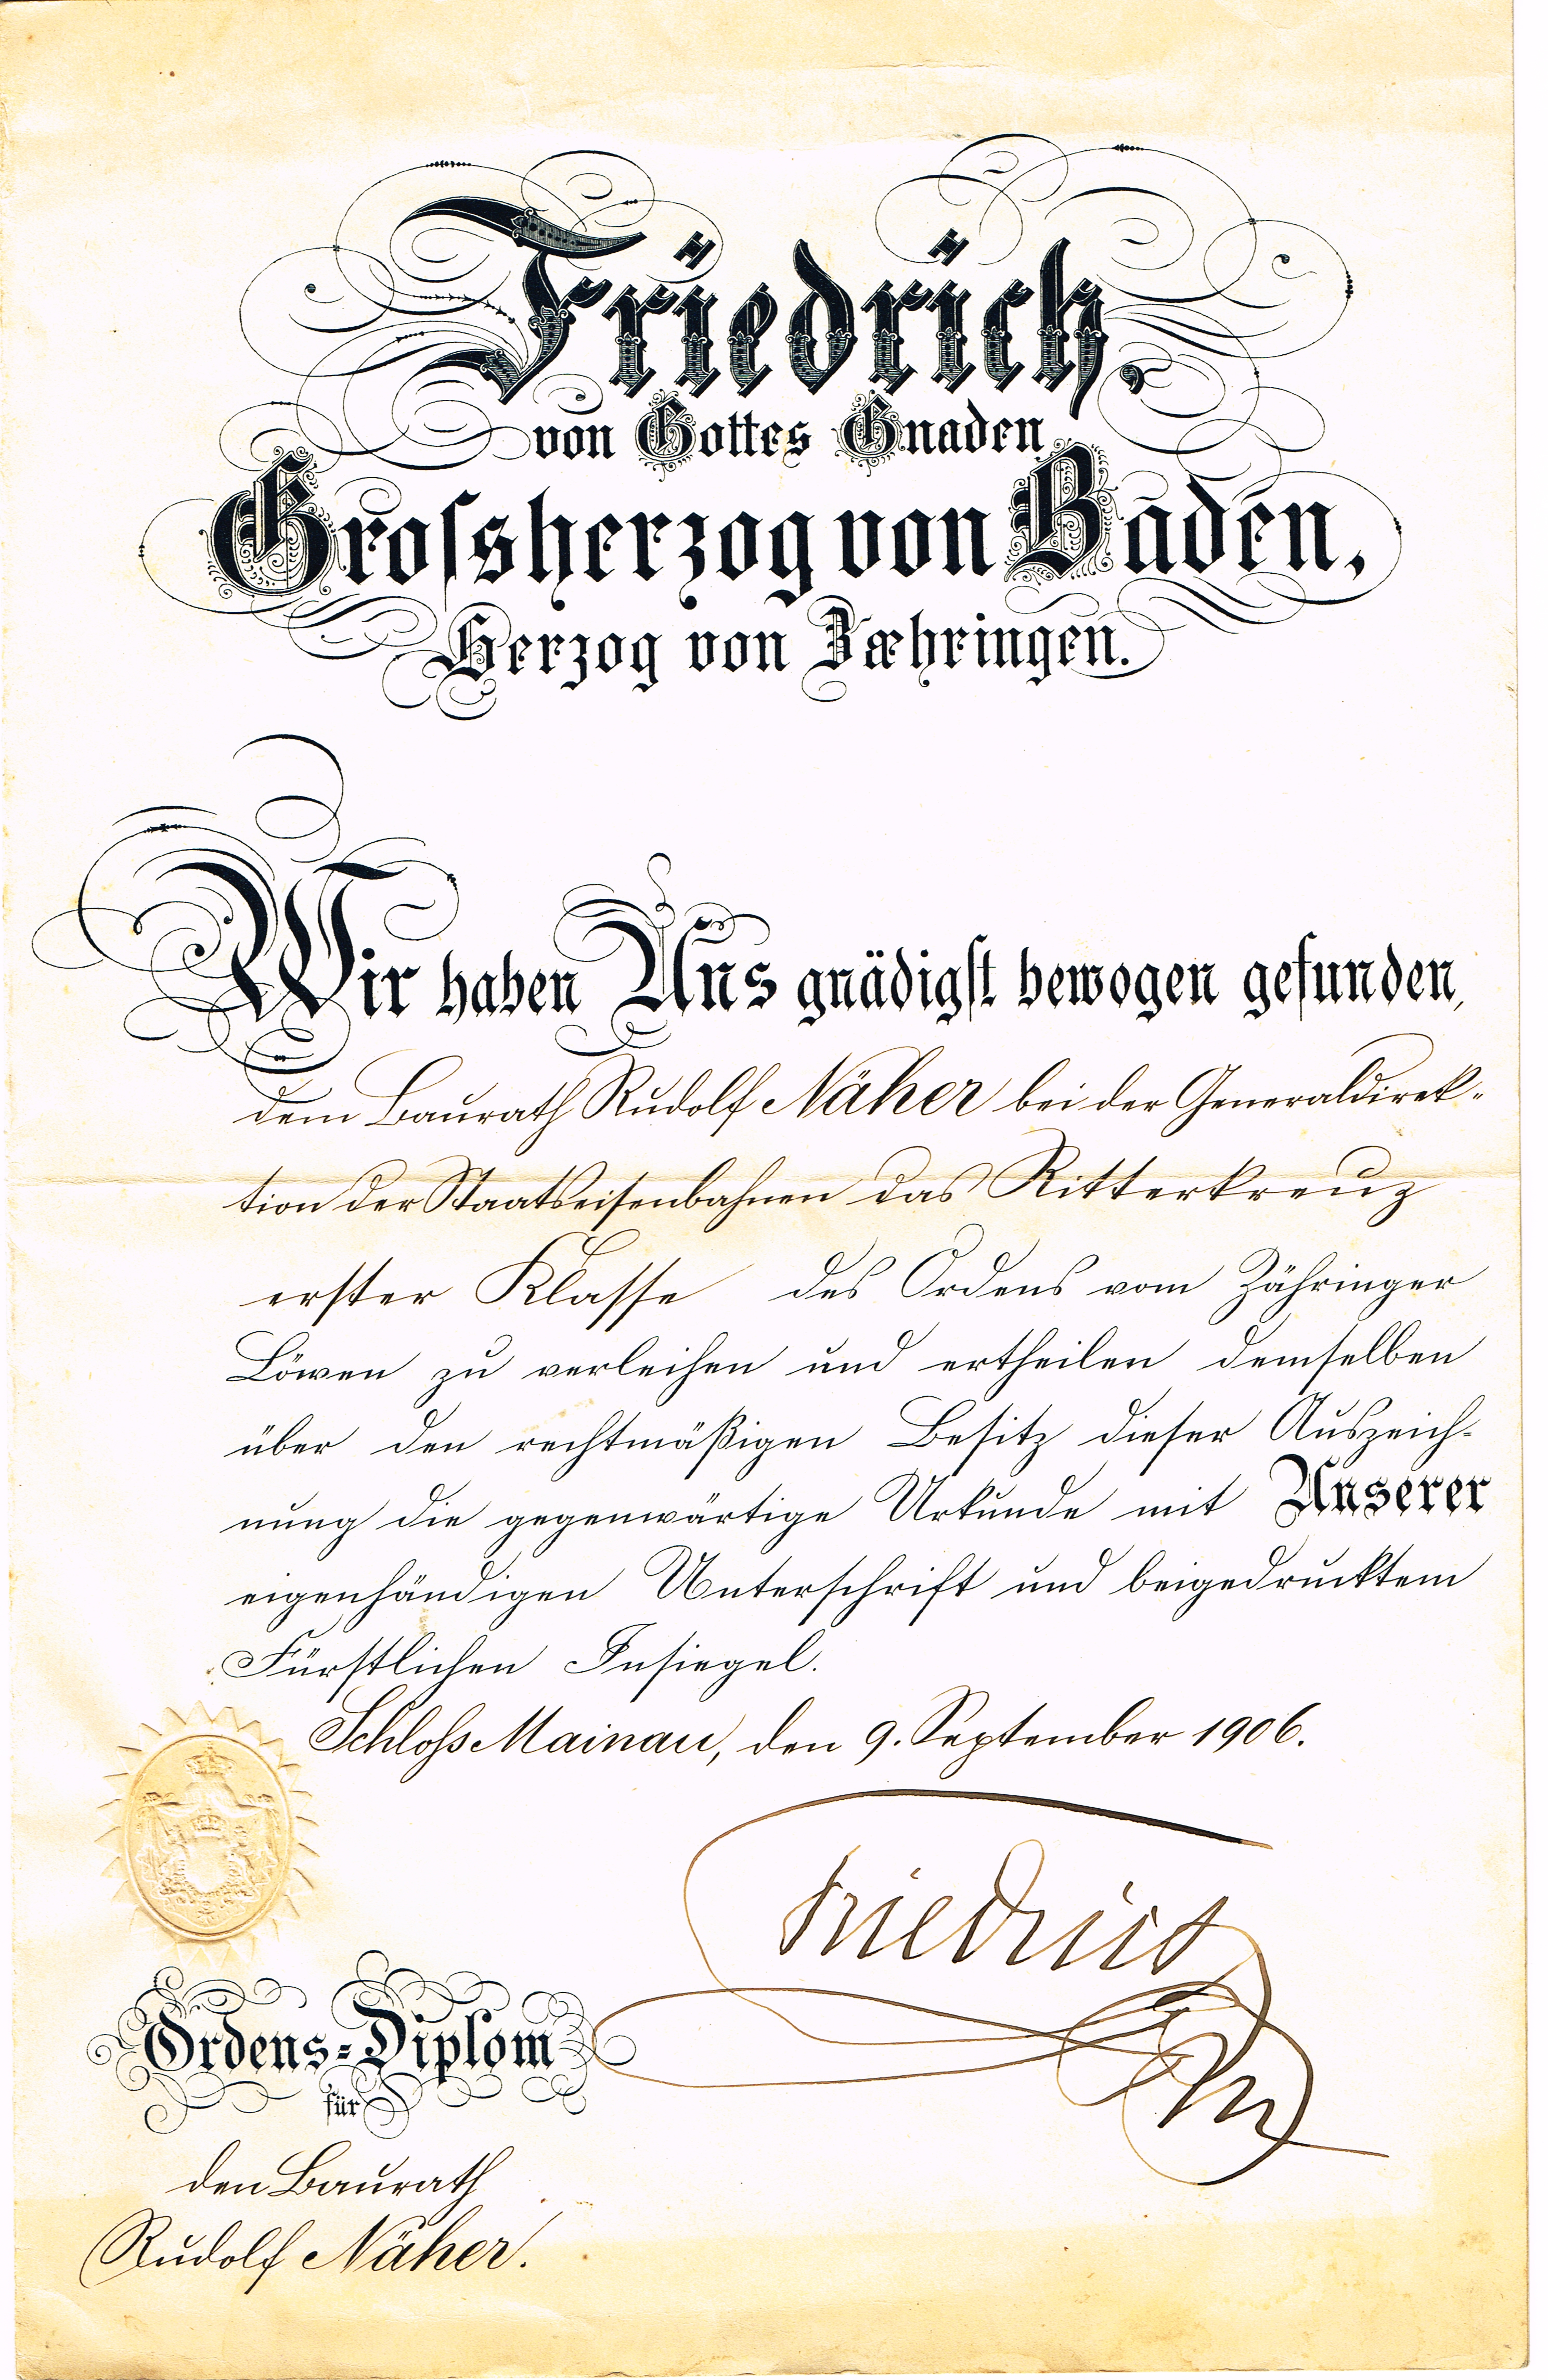 Friedrich,
von Gottes Gnaden
Grossherzog von Baden,
Herzog von Zæhringen.
Wir haben Uns gnädigst bewogen gefunden,
dem Baurath Rudolf Näher bei der Generaldirek-
tion der Staatseisenbahnen das Ritterkreuz
erster Klasse des Ordens vom Zähringer
Löwen zu verleihen und ertheilen demselben
über den rechtmäßigen Besitz dieser Auszeich-
nung die gegenwärtige Urkunde mit Unserer
eigenhändigen Unterschrift und beigedrucktem
Fürstlichen Insiegel.
Schloss Mainau, den 9. September 1906.
Friedrich
Ordens-Diplom
für
den Baurath
Rudolf Näher.